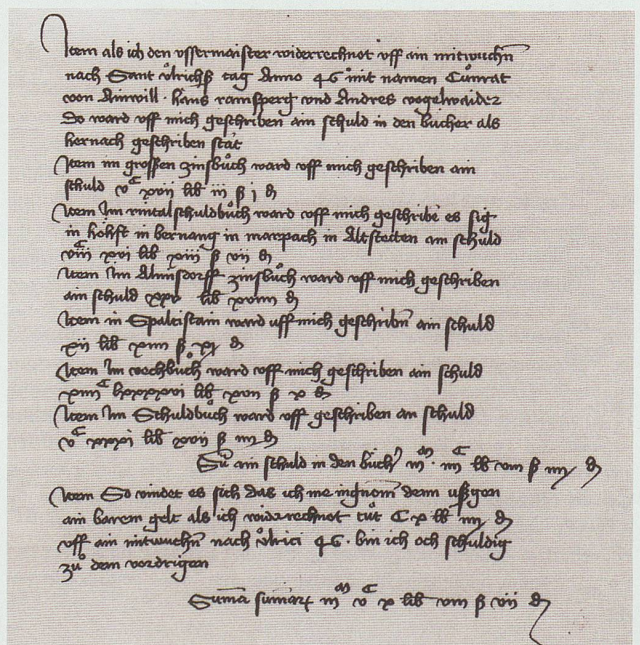 Item als ich den ussermaister widerrechnot uff ain mitwuchn
nach Sant Ulrichs tag Anno 46 mit namen Cůnrat
von Ainwill · Hans ramsperg und Andres vogelwaider
Do ward uff mich geschriben ain schuld in den bücher als
hernach geschriben stat
Item im grossen zinsbůch ward uff mich geschriben ain
schuld vᶜ xvii lib iii ß j d
Item Im rintalschuldbůch ward uff mich geschribe es sig
in höhst in bernang in marpach in Altstetten ain schuld
viiiᶜ xvi lib xiii ß vii d
Item Im Almsdorff zinsbůch ward uff mich geschriben
ain schuld xxv lib xviii d
Item in Spaltistain ward uff mich geschribn ain schuld
xii lib xiiii ß xj d
Item Im wechbůch ward uff mich geschriben ain schuld
xiiiiᶜ lxxxxvi lib xvii ß x d
Item Im Schuldbůch ward uff geschriben an schuld
vᶜ xxxi lib xvii ß iiij d
Sū ain schuld in den büch iiiᵐ · iiiiᶜ lib viii ß iiij d
Item So vindet es sich das ich me ingnom denn ußgen
ain barem gelt als ich widerrechnot tůt C x lib iiij d
uff ain mitwuchn nach Ulrici 46 · bin ich och schuldig
zů dem vordrigen
Suma sumarum iiiᵐ vᶜ x lib viii ß vii d